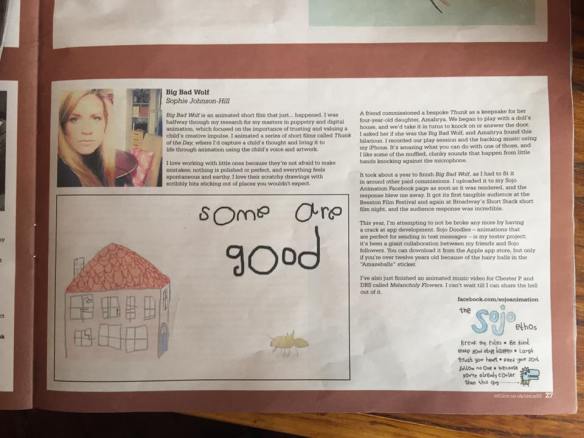 Big Bad Wolf
Sophie Johnson-Hill
Big Bad Wolf is an animated short film that just... happened. I was
halfway through my search for my masters in puppetry and digital
animation, which focused on the importance of trusting and valuing a
child's creative impulse. I animated a series of short films called Thunk
of the Day, where I'd capture a child's thought and bring it to
life through animation using the child's voice and artwork.
I love working with little ones because they're not afraid to make
mistakes; nothing is polished or perfect, and everything feels
spontaneous and earthy. I love their scratchy drawings with
scribbly bits sticking out of places you wouldn't expect.
some are
good
A friend commissioned a bespoke Thunk as a keepsake for her
four-year-old daughter, Amahrya. We began to play with a doll's
house, and we'd take it in turns to knock on or answer the door.
I asked her if she was the Big Bad Wolf, and Amahrya found this
hilarious. I recorded our play session and the backing music using
my iPhone. It's amazing what you can do with one of those, and
I like some of the muffled, clunky sounds that happen from little
hands knocking against the microphone.
It took about a year to finish Big Bad Wolf, as I had to fit it
in around other paid commissions. I uploaded it to my Sojo
Animation Facebook page as soon as it was rendered, and the
response blew me away. It got its first tangible audience at the
Beeston Film Festival and again at Broadway's Short Stack short
film night, and the audience response was incredible.
This year, I'm attempting to not be broke any more by having
a crack at app development. Sojo Doodles – animations that
are perfect for sending in text messages – is my tester project;
it's been a giant collaboration between my friends and Sojo
followers. You can download it from the Apple app store, but only
if you're over twelve years old because of the hairy balls in the
"Amazeballs" sticker.
I've also just finished an animated music video for Chester P and
DRS called Melancholy Flowers. I can't wait till I can share the hell
out of it.
facebook.com/sojoanimation
the
Sojo
ethos
Break the rules • Be kind
make good stuff happen • Laugh
trust your heart • feed your soul
follow no one • because
you're already cooler
than this guy
27